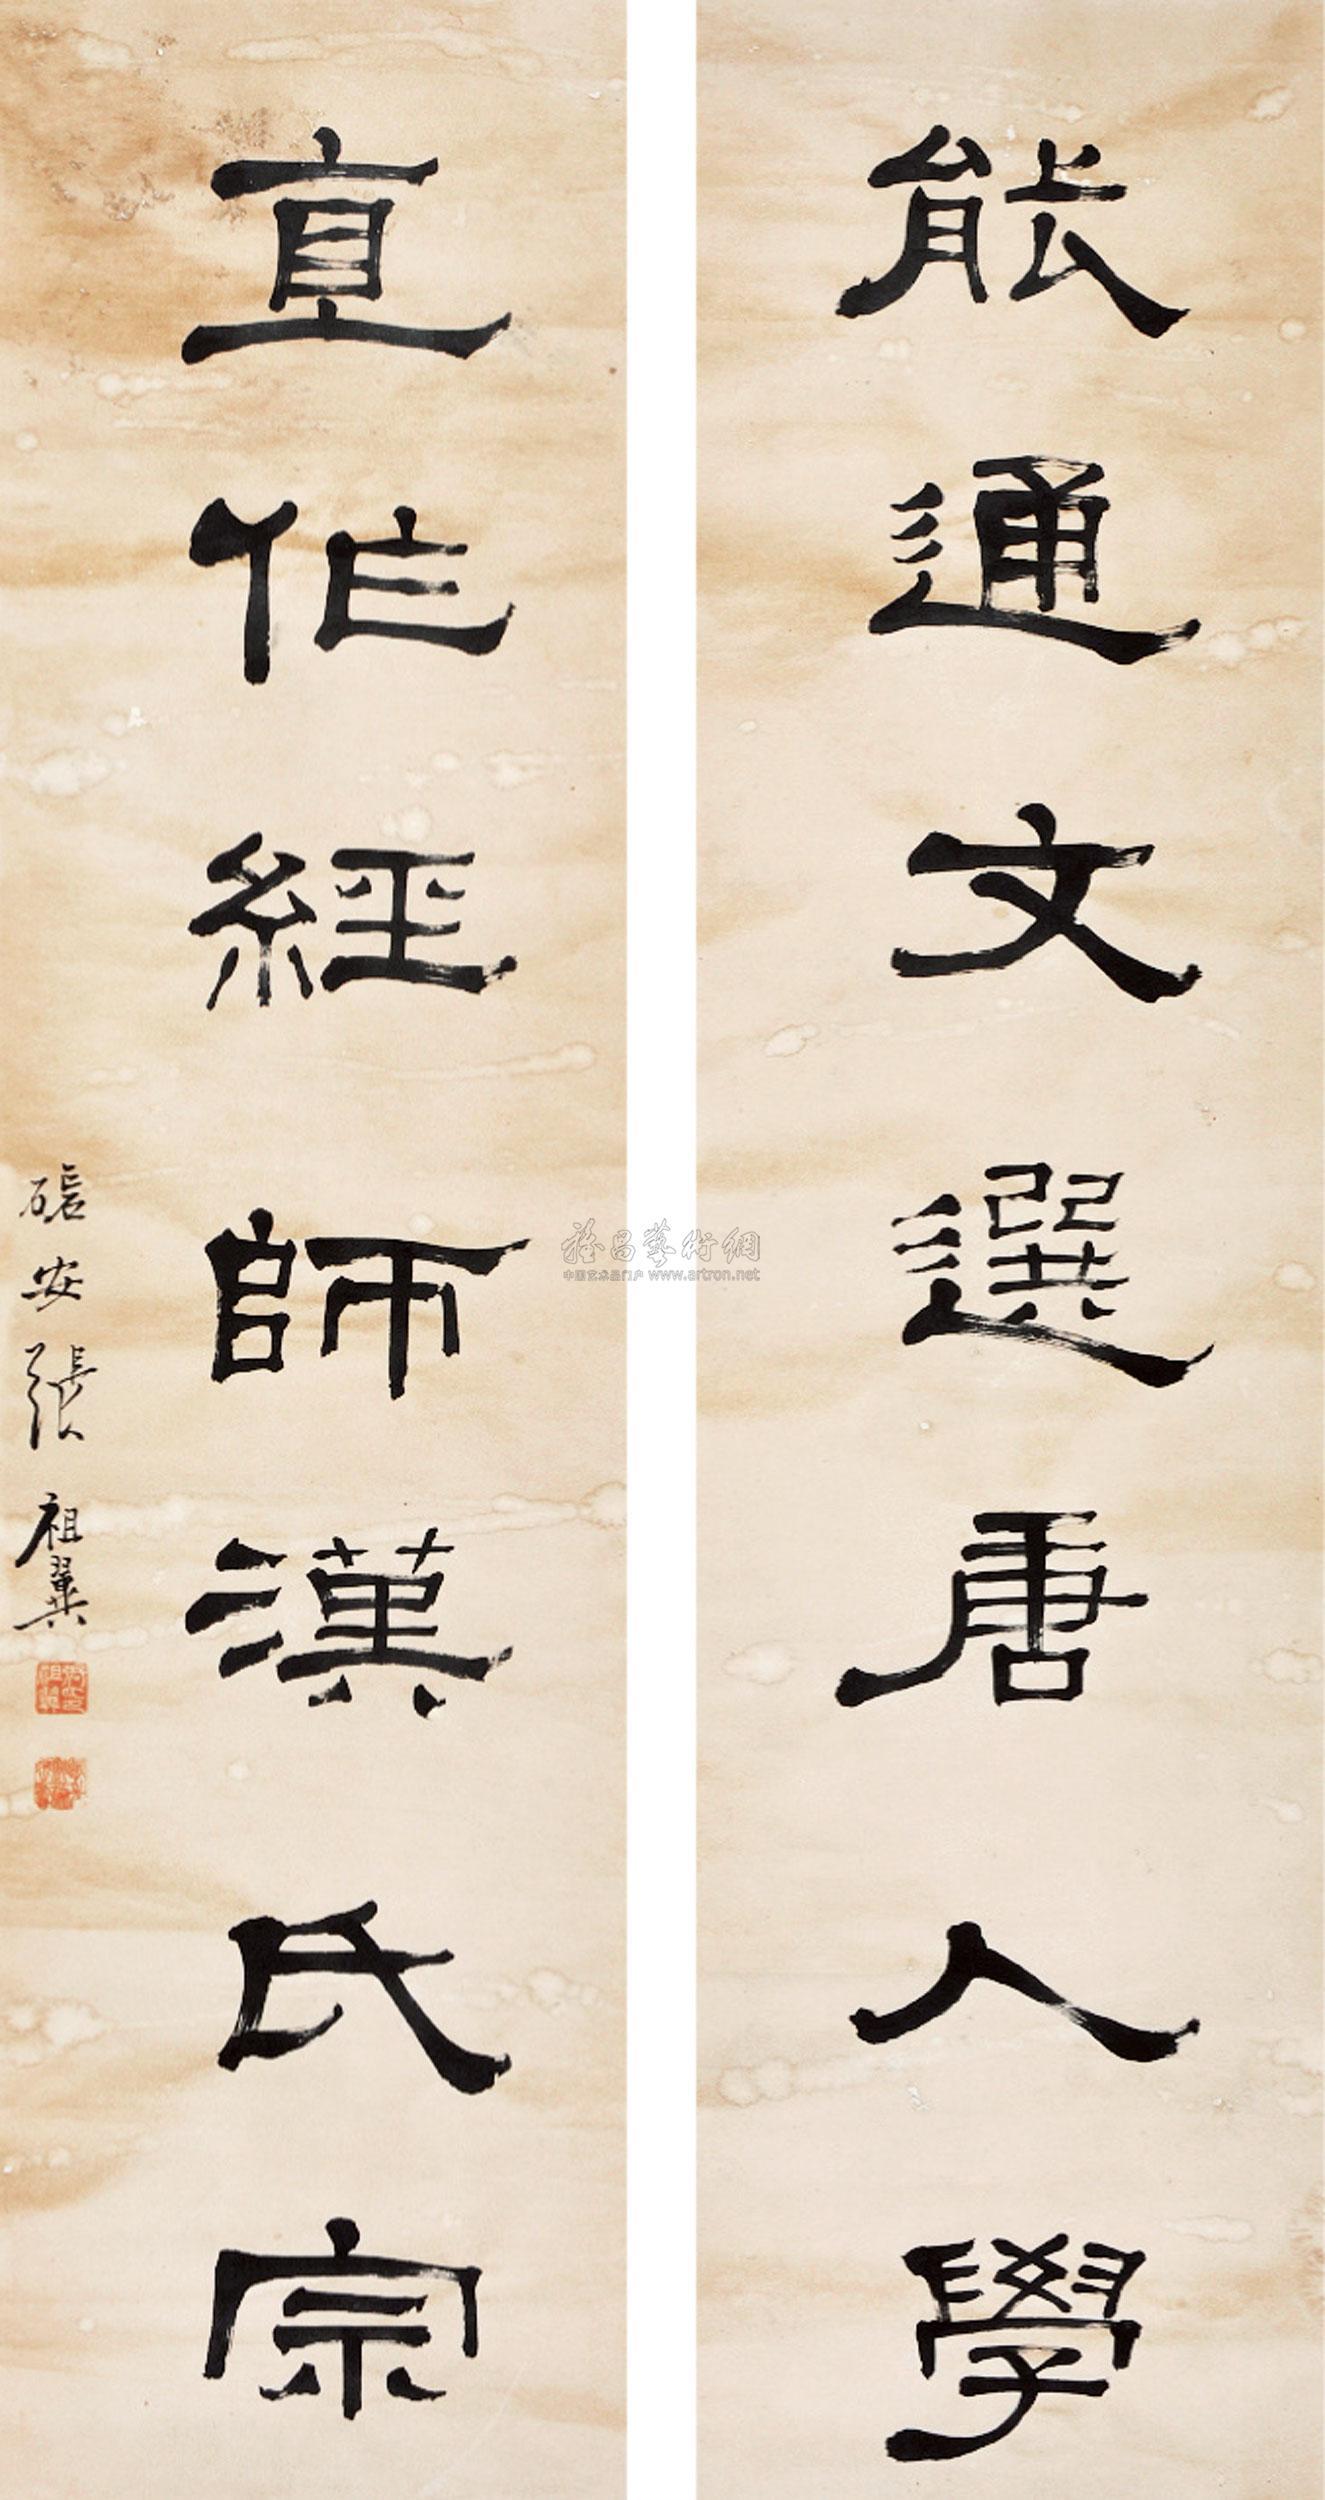 能通文選唐人學
直作經師漢氏宗
磊安張祖翼
雅昌藝術網
中国艺术品门户 www.artron.net